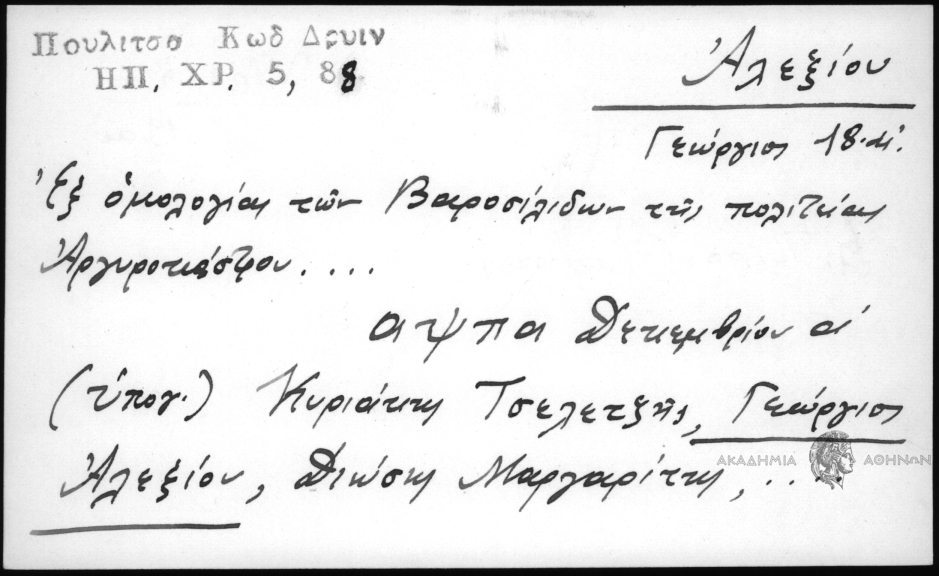 Πουλιτσα Κωδ Δρυιν
ΗΠ. ΧΡ. 5, 88.
Ἀλεξίου
Γεώργιος 18.αἰ.
Ἐξ ὁμολογίας τῶν Βαροσίλιδων τῆς πολιτείας
Ἀργυροκάστρου....
αψπα Δεκεμβρίου α΄
(ὑπογ.) Κυριάκης Τσελετζῆς, Γεώργιος
Ἀλεξίου, Διώσης Μαργαρίτης,...
ΑΚΑΔΗΜΙΑ ΑΘΗΝΩΝ